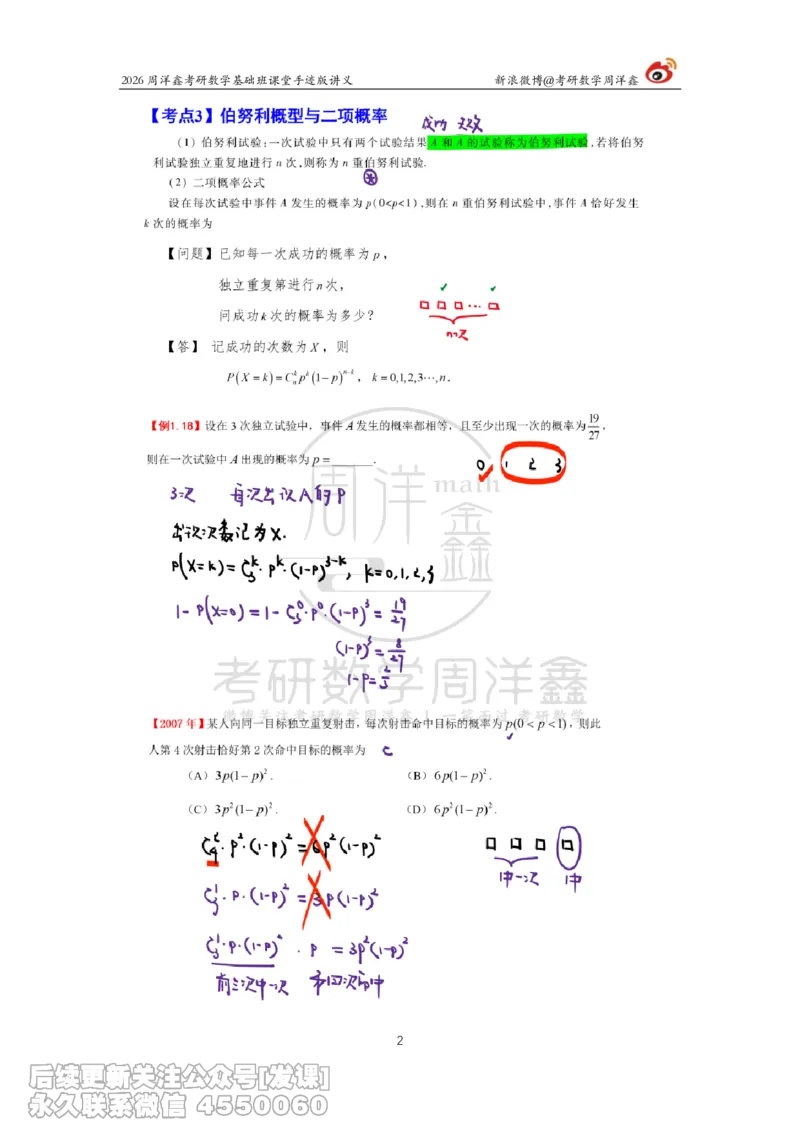 2026 周洋鑫考研数学基础班课堂手迹版讲义 新浪微博@考研数学周洋鑫
【考点3】伯努利概型与二项概率
成功 失败
（1）伯努利试验：一次试验中只有两个试验结果 A 和 Ā 的试验称为伯努利试验,若将伯努
利试验独立重复地进行 n 次,则称为 n 重伯努利试验.
（2）二项概率公式
设在每次试验中事件 A 发生的概率为 p(0<p<1),则在 n 重伯努利试验中,事件 A 恰好发生
k 次的概率为
【问题】已知每一次成功的概率为 p，
独立重复第进行 n 次，
问成功 k 次的概率为多少？
n次
【答】 记成功的次数为 X ，则
P(X=k)=C_n^k p^k (1-p)^{n-k}，k=0,1,2,3⋯,n．
【例1.18】设在 3 次独立试验中，事件 A 发生的概率都相等，且至少出现一次的概率为 19/27，
则在一次试验中 A 出现的概率为 p = ______．
0 1 2 3
3次 每次出现A的P
出次次数记为X.
P(X=k)=C_3^k·p^k·(1-p)^{3-k}, k=0,1,2,3
1-P(X=0)=1-C_3^0·p^0·(1-p)^3=19/27
(1-p)^3=8/27
1-p=2/3
周洋鑫
math
考研数学周洋鑫
【2007 年】某人向同一目标独立重复射击，每次射击命中目标的概率为 p(0<p<1)，则此
人第 4 次射击恰好第 2 次命中目标的概率为 C
（A）3p(1-p)^2．（B）6p(1-p)^2．
（C）3p^2(1-p)^2．（D）6p^2(1-p)^2．
C_4^2·p^2·(1-p)^2=6p^2(1-p)^2
中一次 中
C_3^1·p·(1-p)^2=3p(1-p)^2
C_3^1·p·(1-p)^2·p=3p^2(1-p)^2
前三次中一次 第四次命中
2
后续更新关注公众号[发课]
永久联系微信 4550060